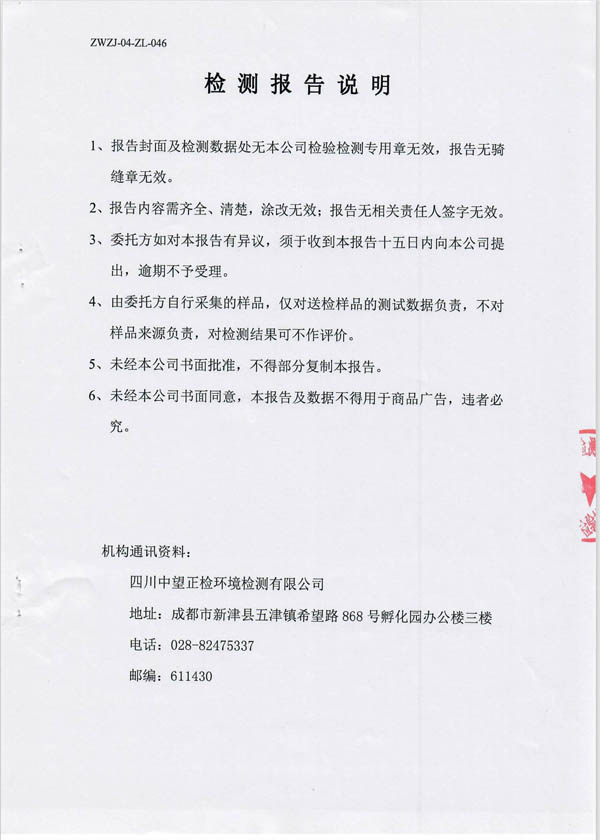 ZWZJ-04-ZL-046
检测报告说明
1、报告封面及检测数据处无本公司检验检测专用章无效，报告无骑
缝章无效。
2、报告内容需齐全、清楚，涂改无效；报告无相关责任人签字无效。
3、委托方如对本报告有异议，须于收到本报告十五日内向本公司提
出，逾期不予受理。
4、由委托方自行采集的样品，仅对送检样品的测试数据负责，不对
样品来源负责，对检测结果可不作评价。
5、未经本公司书面批准，不得部分复制本报告。
6、未经本公司书面同意，本报告及数据不得用于商品广告，违者必
究。
机构通讯资料：
四川中望正检环境检测有限公司
地址：成都市新津县五津镇希望路 868 号孵化园办公楼三楼
电话：028-82475337
邮编：611430